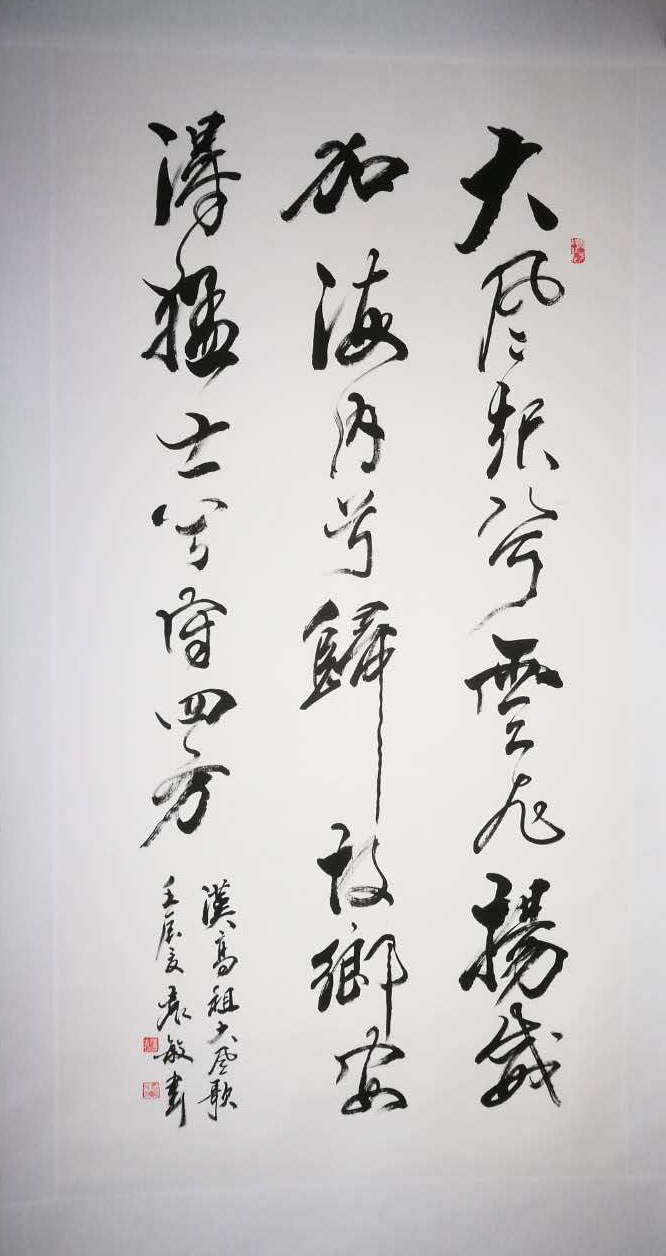 大風起兮雲飛揚威
加海内兮歸故鄉安
得猛士兮守四方
漢高祖大風歌
壬辰夏袁敏書